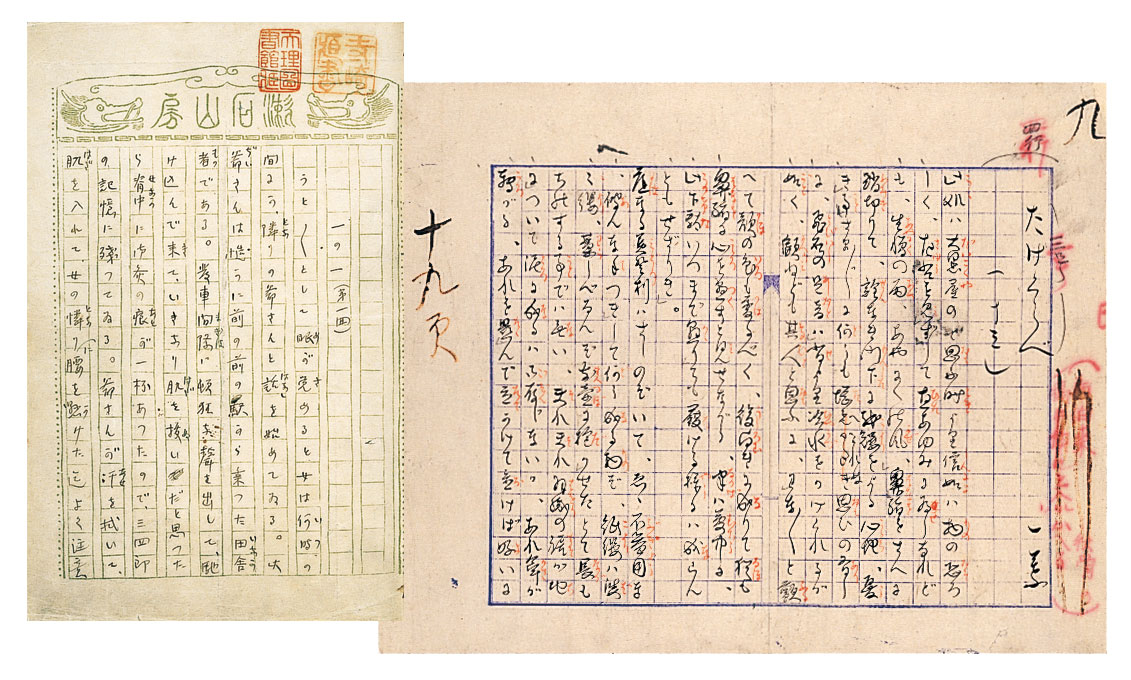 漱石山房
天理図書館蔵
一の一(第一回)
うと/\として眼が覚めると女は何時の
間にか隣りの爺さんと話を始めてゐる。此
爺さんは慥かに前の前の駅から乗つた田舎
者である。発車間際に頓狂な聲を出して、馳
け込んで来て、いきなり肌を抜いだと思つた
ら脊中に御灸の痕が一杯あつたので、三四郎
の記憶に残つてゐる。爺さんが汗を拭いて、
肌を入れて女の隣りに腰を懸けた迄よく注意
九
たけくらべ
一葉
(十三)
此処は大黒屋のと思ふ時より信如は物の恐ろ
しく、左右を見ずして直あゆみに為しなれど
も、生憎の雨、あやにくの風、鼻緒をさへに
踏切りて、詮なき門下に紙縷をよる心地、憂
き事さま/\に何うも堪へられぬ思ひの有し
に、飛石の足音は背より冷水をかけられるが
如く、顧みねども其人と思ふに、わな/\と顫
へて顔の色も変るべく、後向きに成りて猶も
鼻緒に心を尽すと見せながら、半は夢中に
此下駄いつまで懸りても履ける様には成らん
ともせざりき。
庭なる美登利はさしのぞいて、ゑゝ不器用な
、彼んな手つきして何うなる物ぞ、紙縷は婆
々縷、藁しべなんぞ前壷に抱かせたとて長も
ちのする事では無い、夫れ夫れ羽織の裾が地
について泥に成るは御存じ無いか、あれ傘が
転がる、あれを畳んで立てかけて置けば好いに
十九页